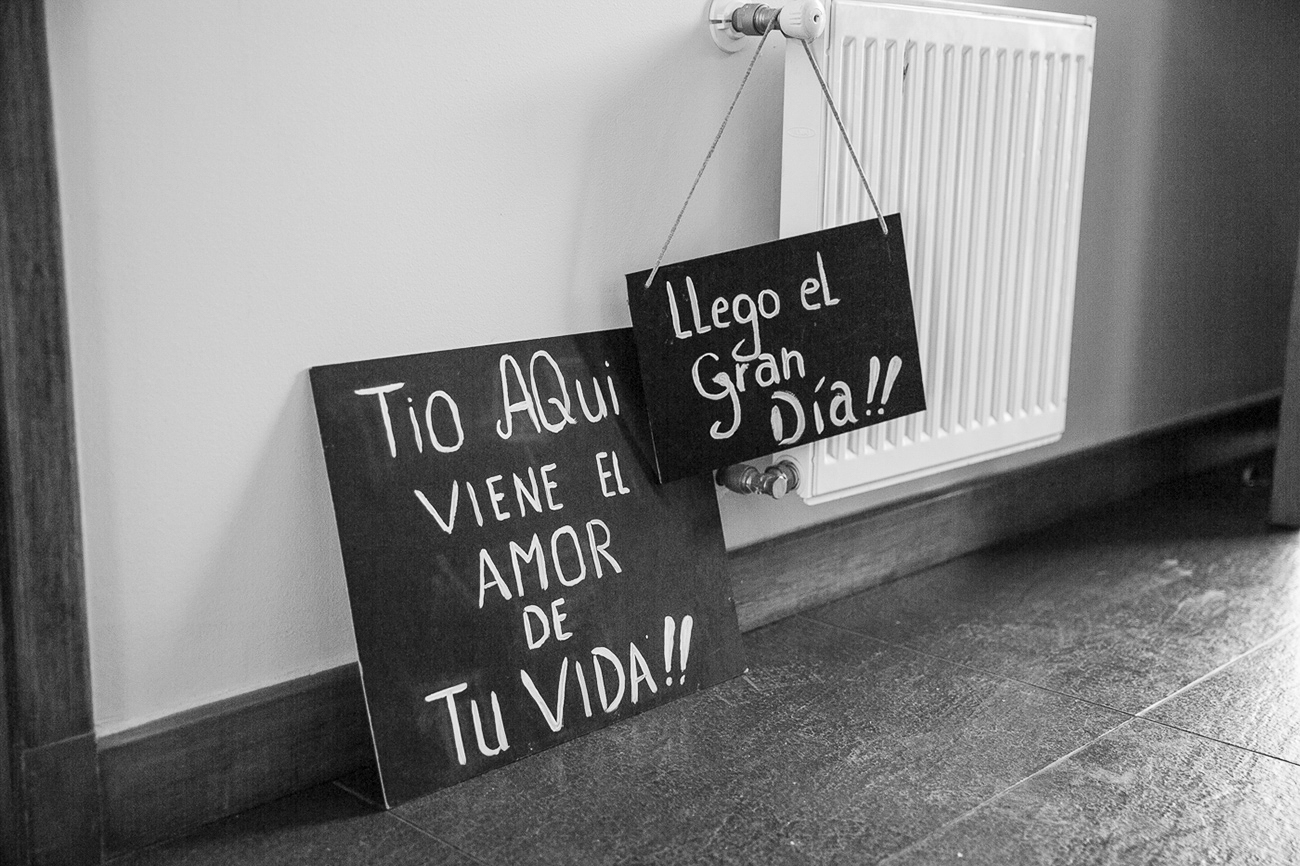 Tio AQui
VIENE EL
AMOR
DE
Tu VIDA!!
LLego el
Gran
Día!!